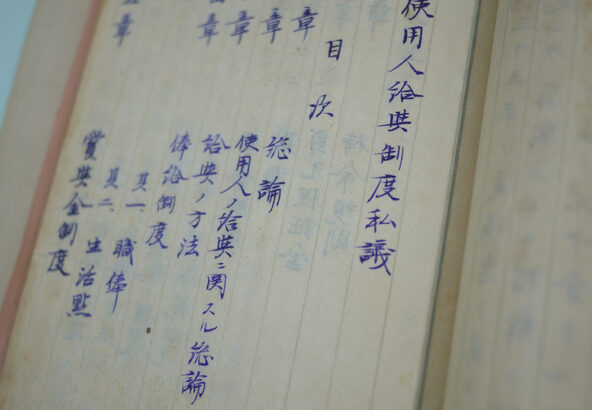 使用人給與制度私議
目次
章 総論
章 使用人ノ給與ニ関スル総論
章 給與ノ方法
章 俸給制度
其一、職俸
其二、生活點
章 賞與金制度